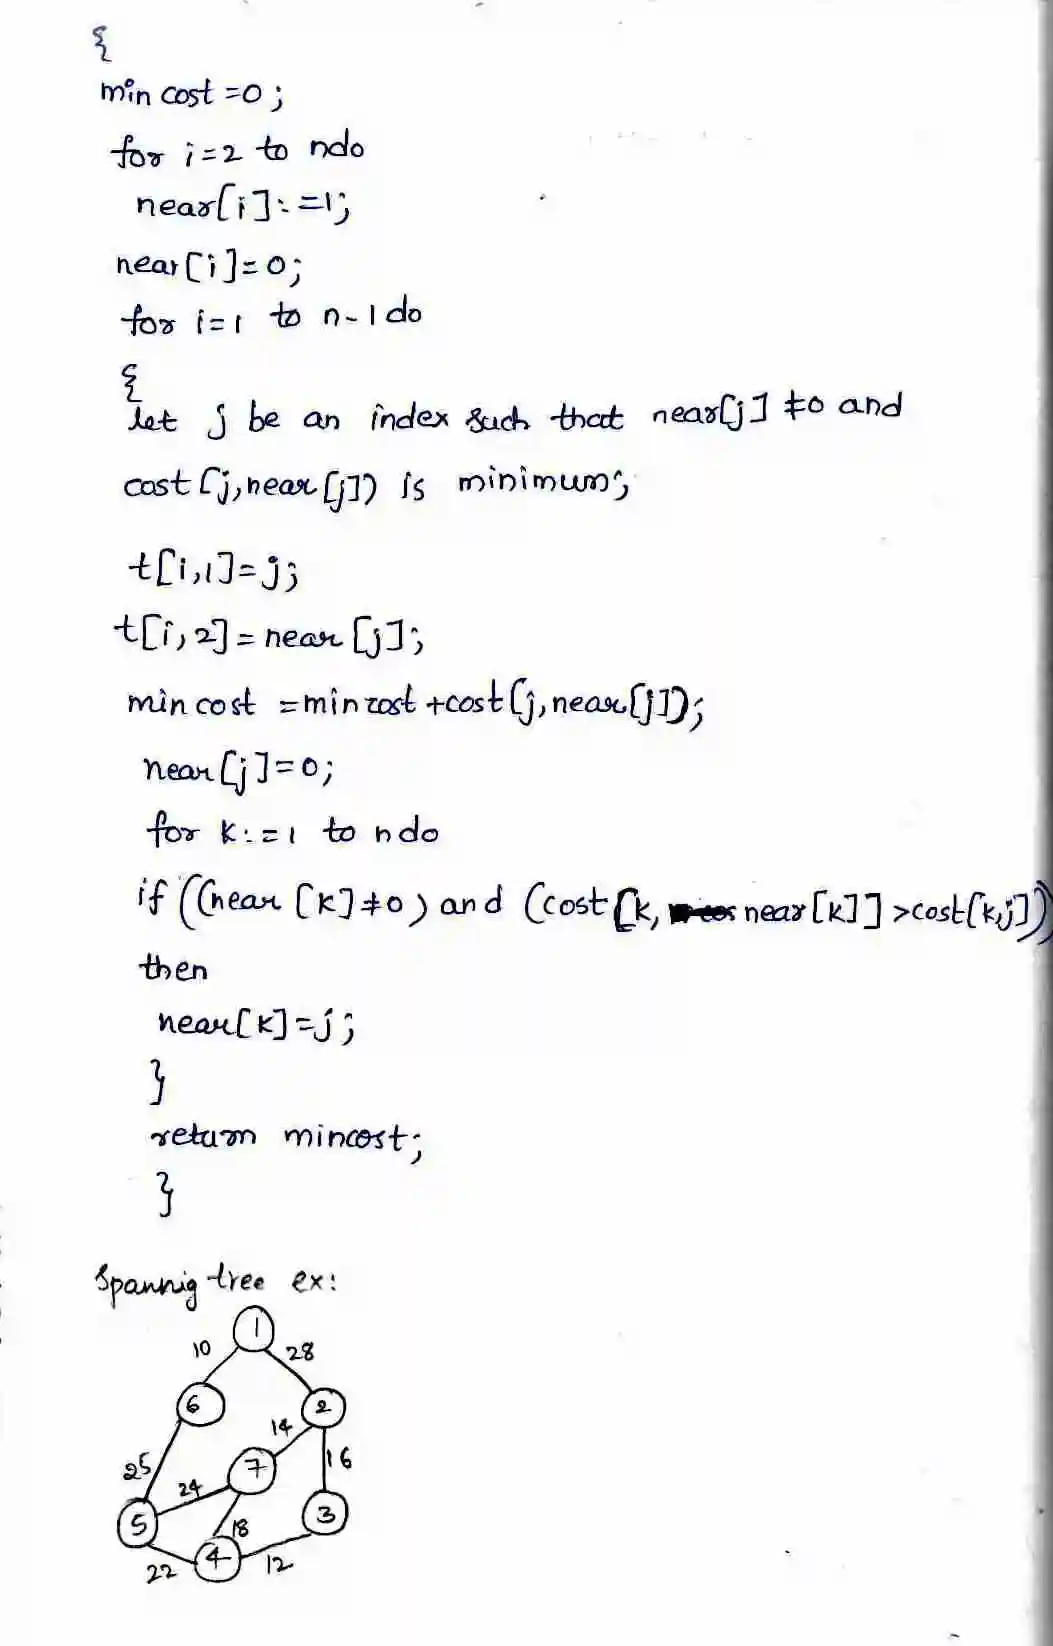 {
min cost =0;
for i=2 to ndo
near[i]:=1;
near[i]=0;
for i=1 to n-1 do
{
let j be an index such that near[j] ≠0 and
cost [j,near[j]) is minimum;
t[i,1]=j;
t[i,2]=near [j];
min cost =mincost +cost[j,near[j]);
near[j]=0;
for k:=1 to ndo
if ((near [k]≠0) and (cost[k, near[k]] >cost[k,j]))
then
near[k]=j;
}
return mincost;
}
Spannig tree ex:
1
10 28
6 2
14
25 7 16
24
5 3
18
4
22 12